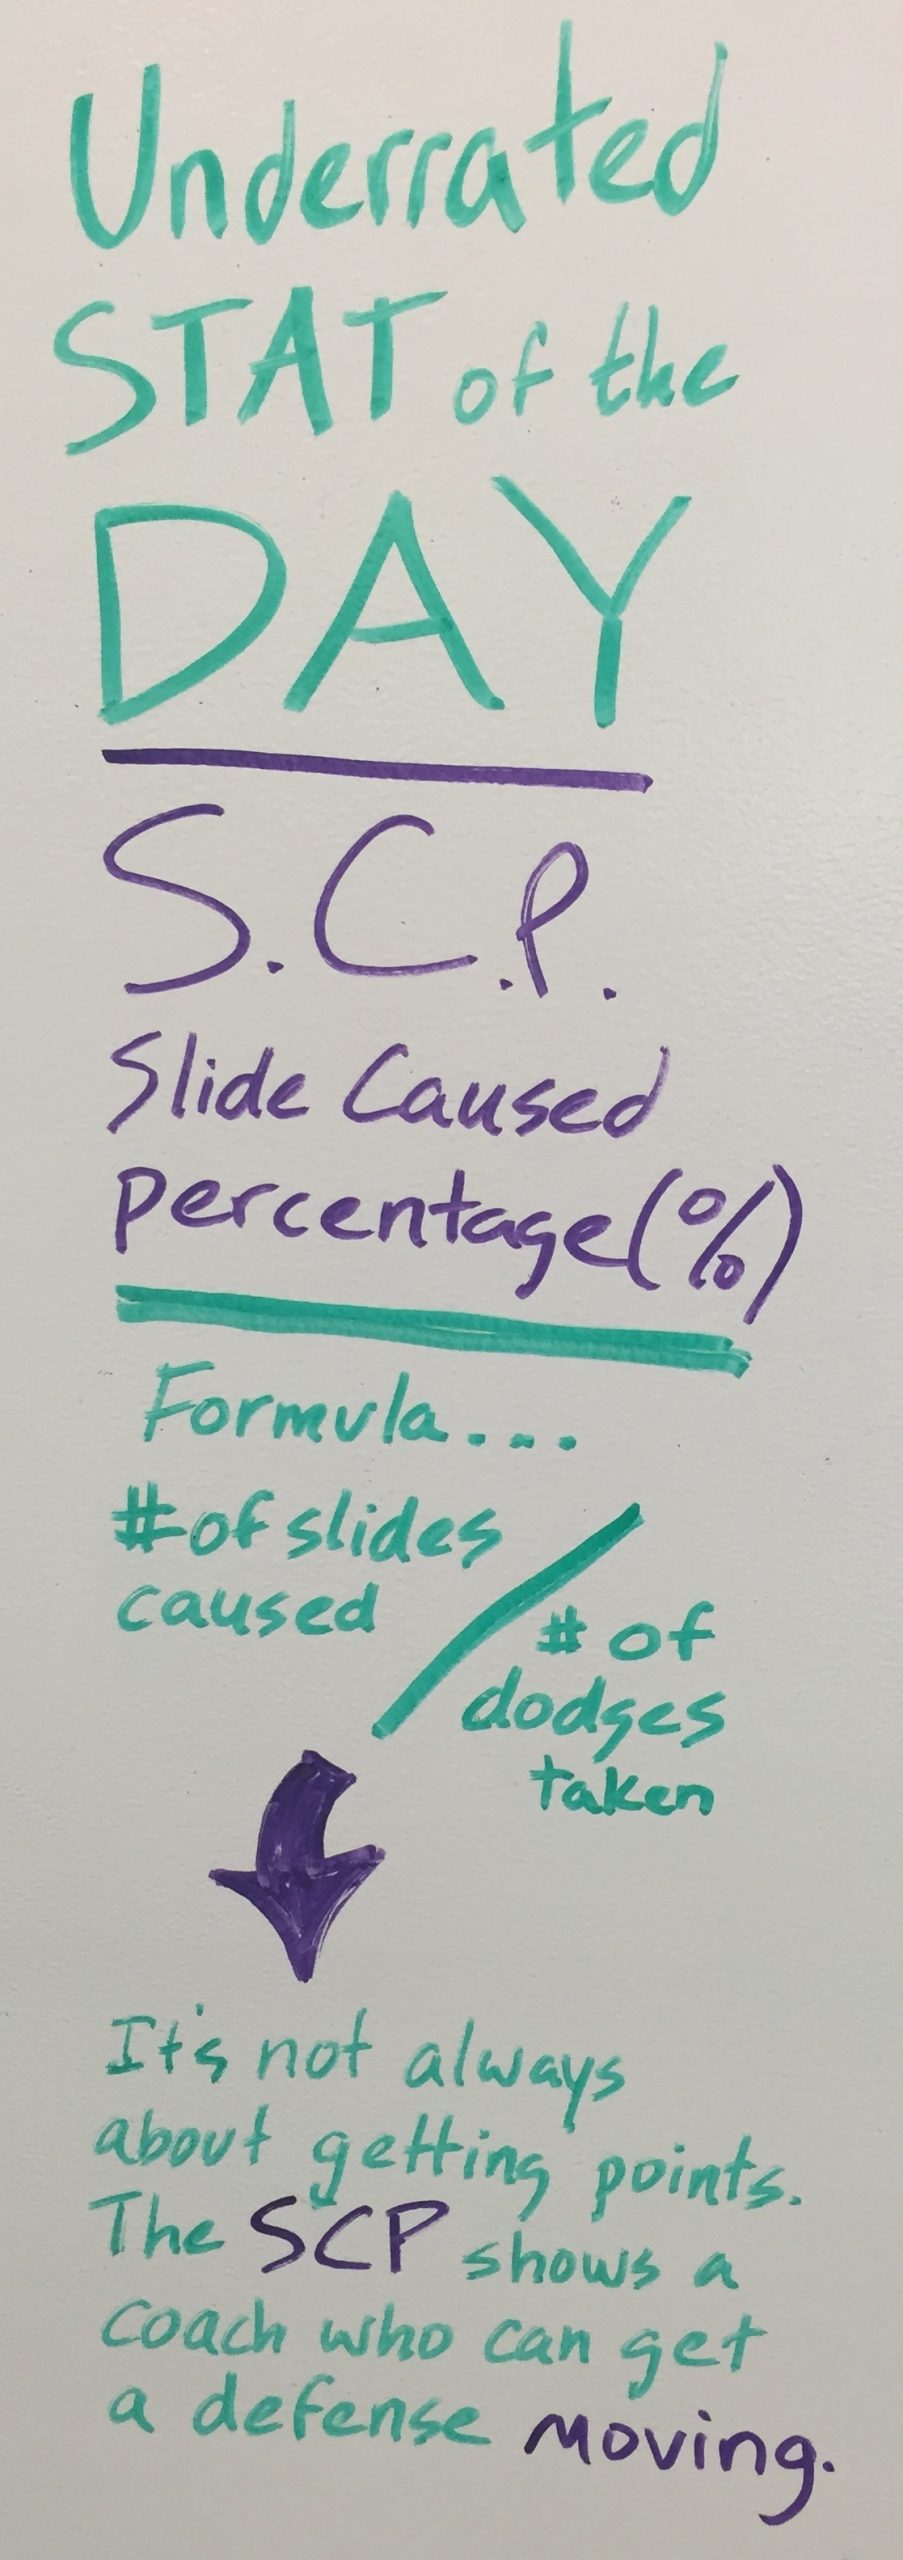 Underrated
STAT of the
DAY
S.C.P.
Slide Caused
Percentage (%)
Formula...
# of slides
caused
/
# of
dodges
taken
It's not always
about getting points.
The SCP shows a
coach who can get
a defense moving.